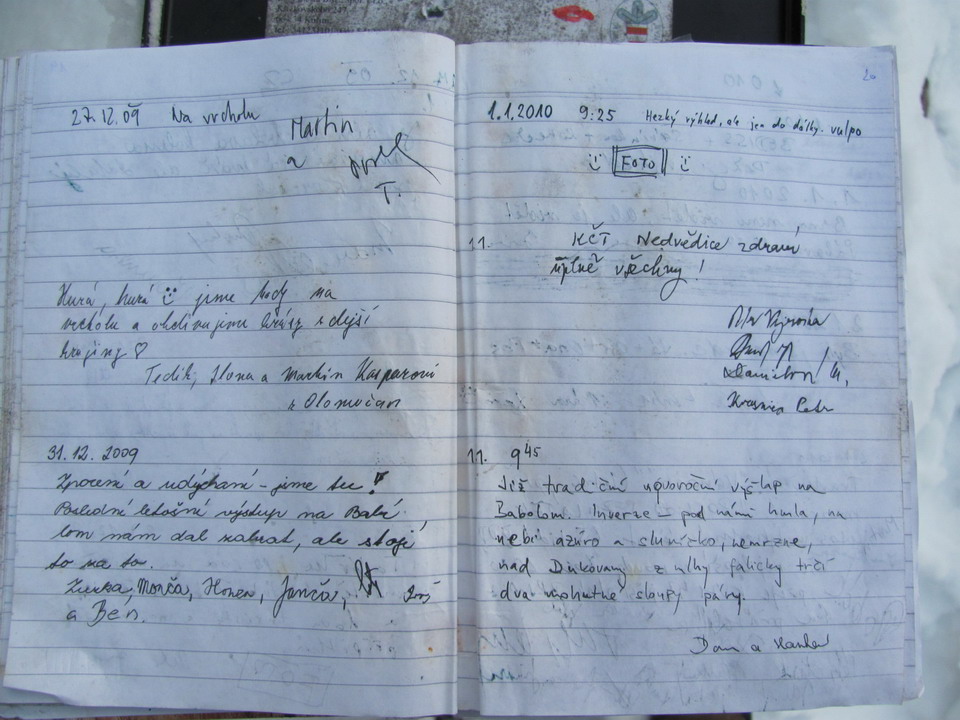 27.12.09 Na vrcholu
Martin
a
T.
Hurá, hurá jsme tady na
vrcholu a obdivujeme krásy zdejší
krajiny ♡
Tedík, Ilona a Martin Kasparovi
z Olomučan
31.12.2009
Zpocení a udýchaní - jsme tu!
Poslední letošní výstup na Babí
lom nám dal zabrat, ale stojí
to za to.
Zuzka, Morča, Honza, Janča,
a Ben.
20
1.1.2010 9:25 Hezký výhled, ale jen do dálky. vulpo
FOTO
1.1. KČT Nedvědice zdraví
úplně všechny!
Petr
1.1. 945
Již tradiční novoroční výstup na
Babolom. Inverze - pod námi hmla, na
nebi azúro a sluníčko, nemrzne,
nad Dukovany z mlhy falicky trčí
dva mohutné sloupy páry.
Dan a Hanka